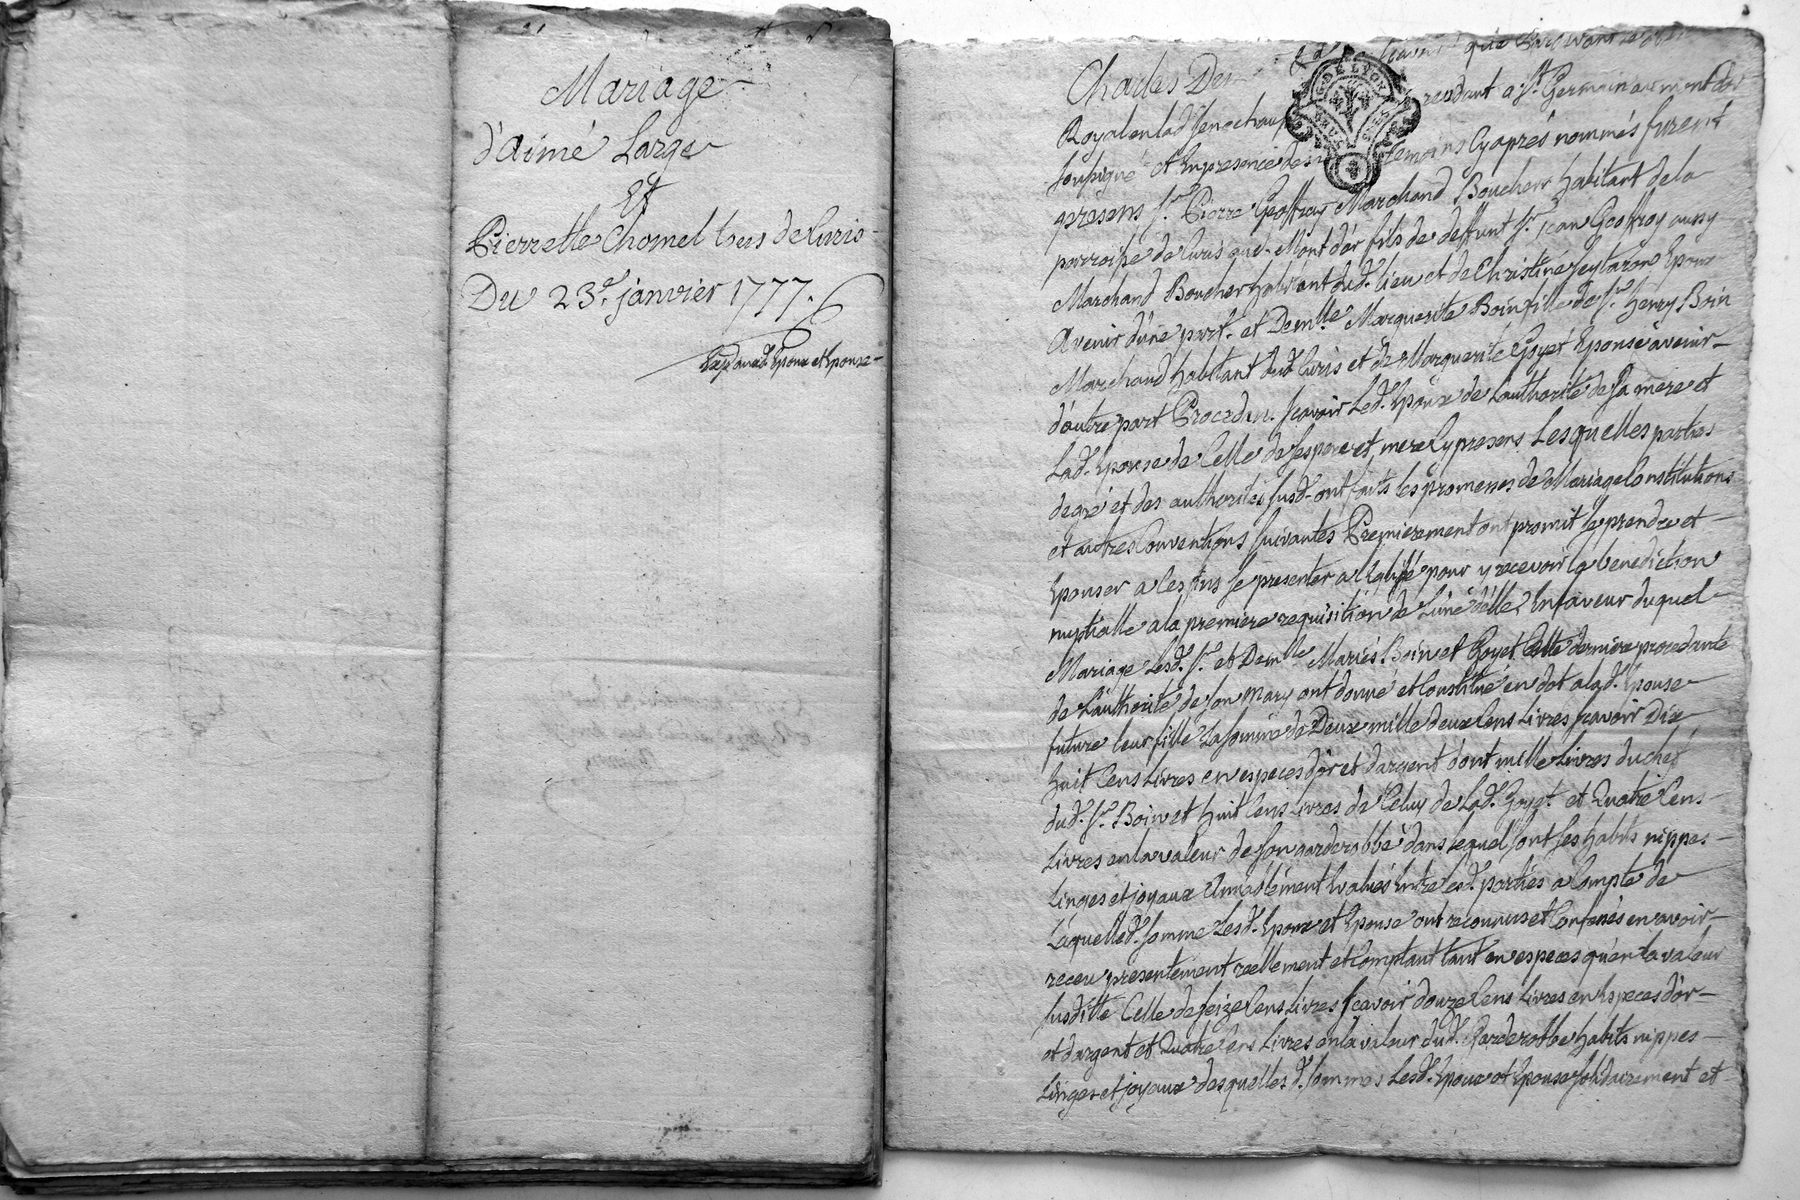 Mariage
d'aimé Large
Et
Pierrette Chomel tous de Curis
Du 23e. janvier 1777.
Expd. aud. Epoux et Epouse
Charles De
scavoir que pardevant le
G. DE LYON
Royal en lad. senechaussée residant a St. Germain au mont dor
soussigné et En presence des temoins cyaprés nommés furent
presens sr. Pierre Geoffray Marchand Boucher habitant de la
parroisse de Curis au Mont d'or fils de deffunt sr. jean Geoffray aussy
Marchand Boucher habitant dud. lieu et de Christine Epoux
Avenir d'une part. et Demlle Marguerite Boin fille de sr. henry Boin
Marchand habitant dud. Curis et de Marguerite Goyet Epouse avenir
d'autre part Procedan. scavoir Led. Epoux de Lauthorité de sa mere et
Lad. Epouse de Celle de ses pere et mere Cy presens Lesquelles parties
de gré et des authorités susd. ont faits les promesses de Mariage Constitutions
et autres Conventions suivantes Premierement ont promit se prendre et
Epouser a Ces fins se presenter a l'Eglise pour y recevoir la benediction
nuptialle a la premiere requisition de L'une d'elle, En faveur duquel
Mariage Lesd. sr. et Demlle Mariés Boin et Goyet Cette derniere procedante
de L'authorité de son Mary ont donné et Constitué en dot a lad. Epouse
future leur fille La somme de Deux mille deux Cens Livres scavoir Dix
huit Cens Livres en especes d'or et d'argent dont mille Livres du chef
dud. sr. Boin et huit Cens Livres de Celuy de Lad. Goyet. et Quatre Cens
Livres en la valeur de son garderobbe dans lequel sont ses habits nippes
Linges et joyaux Amiablement Evalués Entre lesd. parties a Compte de
Laquelle d. somme Lesd. Epoux et Epouse ont reconnus et Confessés en avoir
receu presentement reellement et Comptant tant en especes qu'en la valeur
susditte Celle de seize Cens Livres scavoir douze Cens Livres en Especes d'or
et d'argent et Quatre Cens Livres en la valeur dud. Garderobbe habits nippes
Linges et joyaux desquelles d. sommes Lesd. Epoux et Epouse solidairement et